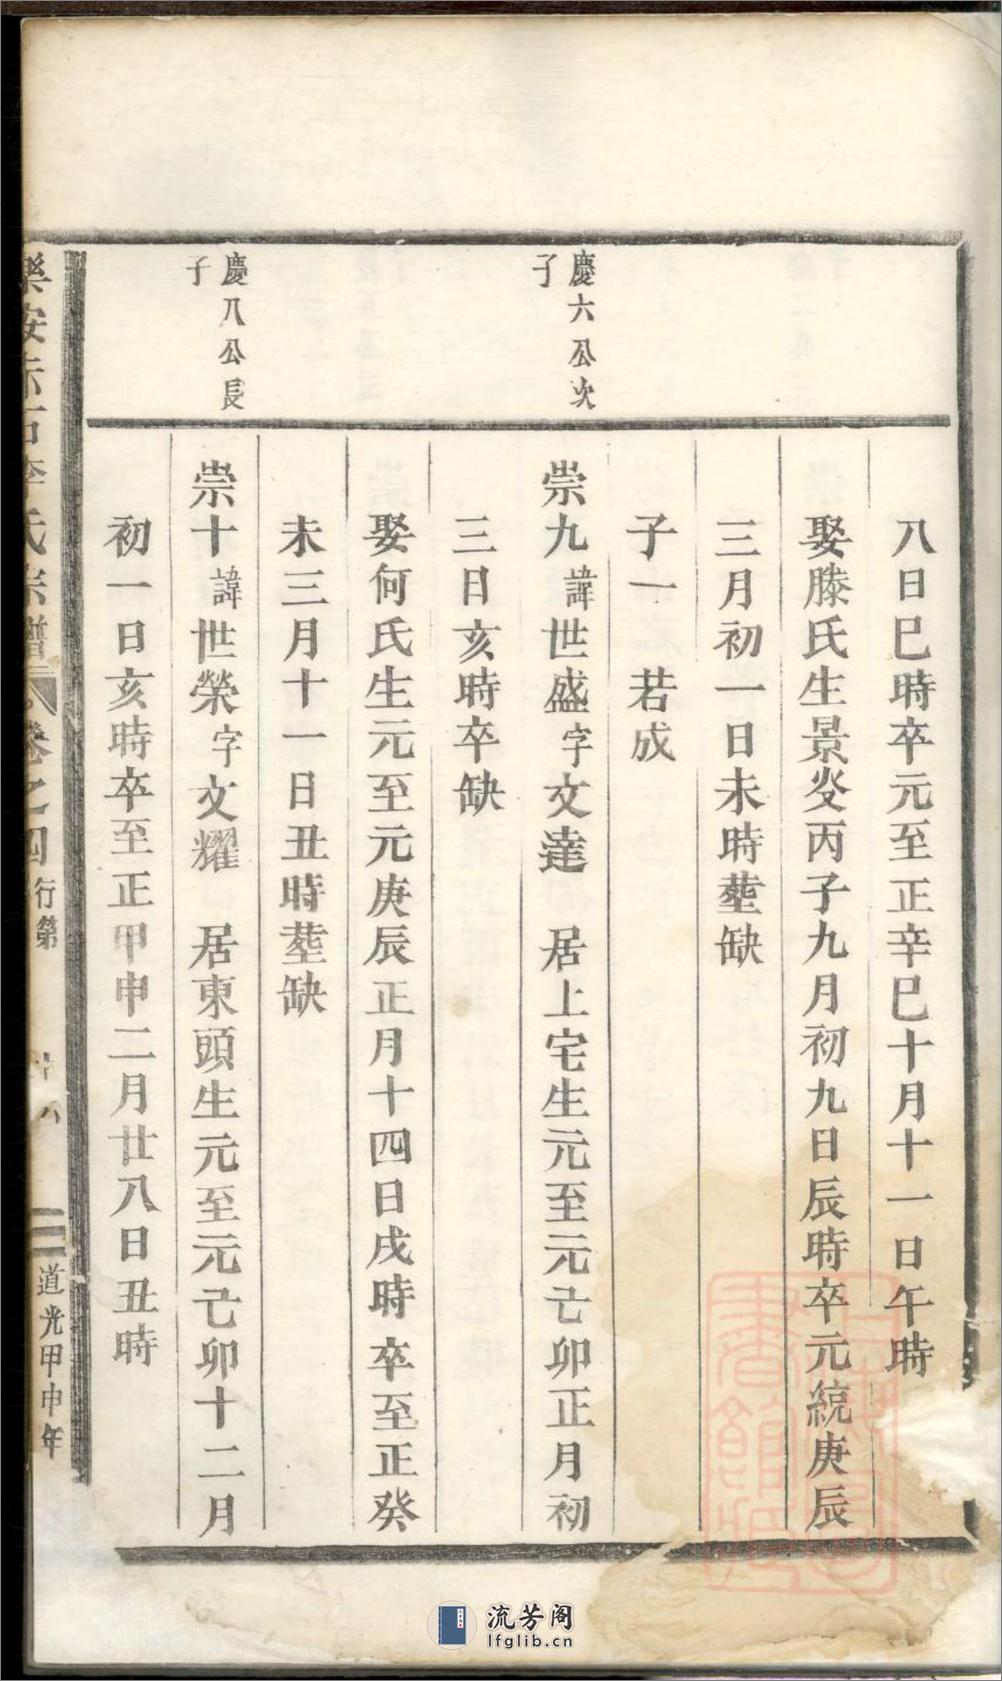 八日巳時卒元至正辛巳十月十一日午時
娶滕氏生景炎丙子九月初九日辰時卒元統庚辰
三月初一日未時塟缺
子一 若成
慶六公次
子
崇九諱世盛字文達 居上宅生元至元己卯正月初
三日亥時卒缺
娶何氏生元至元庚辰正月十四日戌時卒至正癸
未三月十一日丑時塟缺
慶八公長
子
崇十諱世榮字文耀 居東頭生元至元己卯十二月
初一日亥時卒至正甲申二月廿八日丑時
樂安赤石李氏宗譜 卷之四 行第 十八 道光甲申年
流芳阁
lfglib.cn